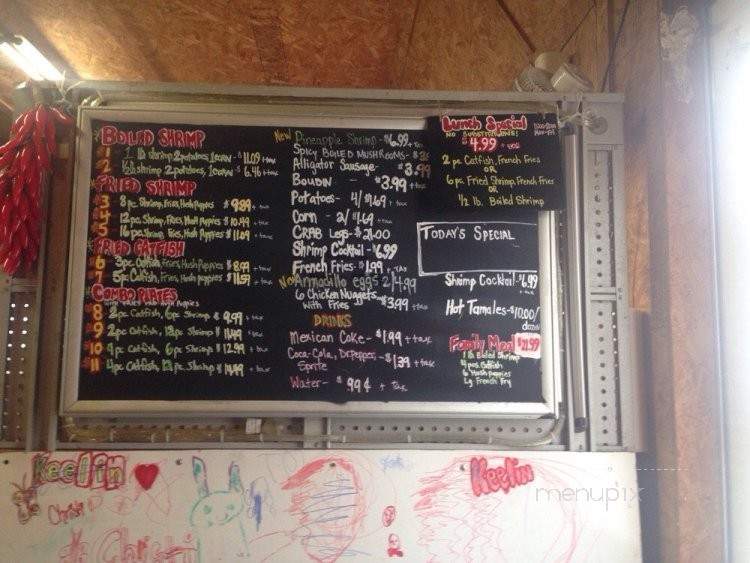 BOILED SHRIMP
1 1 lb shrimp 2 potatoes, 1 corn - $11.09 + tax
2 1/2 lb shrimp 2 potatoes, 1 corn - $6.46 + tax
FRIED SHRIMP
#3 8 pc. Shrimp, Fries, Hush Puppies $9.89 + tax
#4 12 pc. Shrimp, Fries, Hush Puppies $10.49 + tax
#5 16 pc. Shrimp, Fries, Hush Puppies $11.69 + tax
FRIED CATFISH
#6 3 pc. Catfish, Fries, Hush Puppies $8.99 + tax
#7 5 pc. Catfish, Fries, Hush puppies $11.59 + tax
COMBO PLATES
with Fries Hush Puppies
#8 2 pc. Catfish, 6 pc. Shrimp $9.99 + tax
#9 2 pc. Catfish, Shrimp $11.49 + tax
#10 4 pc. Catfish, 6 pc. Shrimp $12.99 + tax
#11 4 pc. Catfish, 12 pc. Shrimp $14.49 + tax
New Pineapple Shrimp - $6.99 + tax
SPICY BOILED MUSHROOMS - $3
Alligator Sausage - $3.99
BOUDIN - $3.99 + tax
Potatoes - 4/$1.69 + tax
Corn - 2/$1.69 + tax
CRAB Legs - $21.00
Shrimp Cocktail - $6.99
French Fries - $1.99 + TAX
New Armadillo eggs 2/4.99
6 Chicken Nuggets with Fries $3.99 + tax
DRINKS
Mexican Coke - $1.99 + tax
Coca-Cola, Dr.Pepper, Sprite - $1.39 + tax
Water - $.99¢ + Tax
Lunch Special
NO SUBSTITUTIONS!
$4.99 + tax
2 pc. Catfish, French Fries
OR
6 pc. Fried Shrimp, French Fries
OR
1/2 lb. Boiled Shrimp
TODAY'S SPECIAL
Shrimp Cocktail - $6.99
+ tax
Hot Tamales - $10.00/
dozen
Family Meal $21.99
1 lb Boiled Shrimp
4 pcs. Catfish
6 Hush puppies
Lg. French Fry
Keelin
Keelin
Christi
Christi
menupix